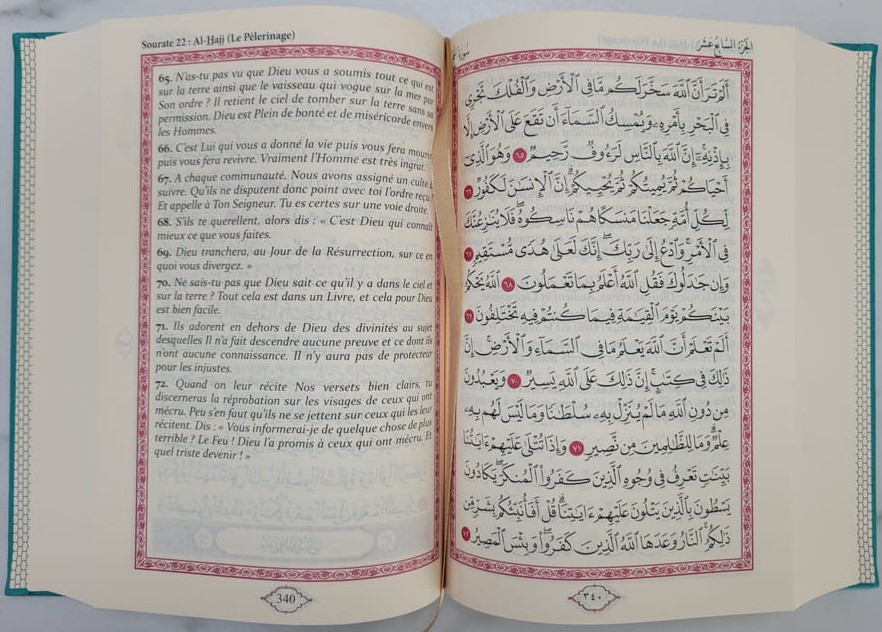 Sourate 22 : Al-Ḥajj (Le Pèlerinage)
65. N'as-tu pas vu que Dieu vous a soumis tout ce qui est
sur la terre ainsi que le vaisseau qui vogue sur la mer par
Son ordre ? Il retient le ciel de tomber sur la terre sans sa
permission. Dieu est Plein de bonté et de miséricorde envers
les Hommes.
66. C'est Lui qui vous a donné la vie puis vous fera mourir
puis vous fera revivre. Vraiment l'Homme est très ingrat.
67. A chaque communauté, Nous avons assigné un culte à
suivre. Qu'ils ne disputent donc point avec toi l'ordre reçu !
Et appelle à Ton Seigneur. Tu es certes sur une voie droite.
68. S'ils te querellent, alors dis : « C'est Dieu qui connaît
mieux ce que vous faites.
69. Dieu tranchera, au Jour de la Résurrection, sur ce en
quoi vous divergez. »
70. Ne sais-tu pas que Dieu sait ce qu'il y a dans le ciel et
sur la terre ? Tout cela est dans un Livre, et cela pour Dieu
est bien facile.
71. Ils adorent en dehors de Dieu des divinités au sujet
desquelles Il n'a fait descendre aucune preuve et ce dont ils
n'ont aucune connaissance. Il n'y aura pas de protecteur
pour les injustes.
72. Quand on leur récite Nos versets bien clairs, tu
discerneras la réprobation sur les visages de ceux qui ont
mécru. Peu s'en faut qu'ils ne se jettent sur ceux qui les leur
récitent. Dis : « Vous informerai-je de quelque chose de plus
terrible ? Le Feu ! Dieu l'a promis à ceux qui ont mécru. Et
quel triste devenir ! »
340
الجزء السابع عشر
سورة
أَلَمْ تَرَ أَنَّ ٱللَّهَ سَخَّرَ لَكُم مَّا فِي ٱلْأَرْضِ وَٱلْفُلْكَ تَجْرِي
فِي ٱلْبَحْرِ بِأَمْرِهِۦ وَيُمْسِكُ ٱلسَّمَآءَ أَن تَقَعَ عَلَى ٱلْأَرْضِ إِلَّا
بِإِذْنِهِۦٓ إِنَّ ٱللَّهَ بِٱلنَّاسِ لَرَءُوفٌ رَّحِيمٌ ٦٥ وَهُوَ ٱلَّذِيٓ
أَحْيَاكُمْ ثُمَّ يُمِيتُكُمْ ثُمَّ يُحْيِيكُمْ إِنَّ ٱلْإِنسَٰنَ لَكَفُورٌ ٦٦
لِكُلِّ أُمَّةٍ جَعَلْنَا مَنسَكًا هُمْ نَاسِكُوهُ فَلَا يُنَٰزِعُنَّكَ
فِي ٱلْأَمْرِ وَٱدْعُ إِلَىٰ رَبِّكَ إِنَّكَ لَعَلَىٰ هُدًى مُّسْتَقِيمٍ ٦٧
وَإِن جَٰدَلُوكَ فَقُلِ ٱللَّهُ أَعْلَمُ بِمَا تَعْمَلُونَ ٦٨ ٱللَّهُ يَحْكُمُ
بَيْنَكُمْ يَوْمَ ٱلْقِيَٰمَةِ فِيمَا كُنتُمْ فِيهِ تَخْتَلِفُونَ ٦٩
أَلَمْ تَعْلَمْ أَنَّ ٱللَّهَ يَعْلَمُ مَا فِي ٱلسَّمَآءِ وَٱلْأَرْضِ إِنَّ
ذَٰلِكَ فِي كِتَٰبٍ إِنَّ ذَٰلِكَ عَلَى ٱللَّهِ يَسِيرٌ ٧٠ وَيَعْبُدُونَ
مِن دُونِ ٱللَّهِ مَا لَمْ يُنَزِّلْ بِهِۦ سُلْطَٰنًا وَمَا لَيْسَ لَهُم بِهِۦ
عِلْمٌ وَمَا لِلظَّٰلِمِينَ مِن نَّصِيرٍ ٧١ وَإِذَا تُتْلَىٰ عَلَيْهِمْ ءَايَٰتُنَا
بَيِّنَٰتٍ تَعْرِفُ فِي وُجُوهِ ٱلَّذِينَ كَفَرُوا۟ ٱلْمُنكَرَ يَكَادُونَ
يَسْطُونَ بِٱلَّذِينَ يَتْلُونَ عَلَيْهِمْ ءَايَٰتِنَا قُلْ أَفَأُنَبِّئُكُم بِشَرٍّ مِّن
ذَٰلِكُمُ ٱلنَّارُ وَعَدَهَا ٱللَّهُ ٱلَّذِينَ كَفَرُوا۟ وَبِئْسَ ٱلْمَصِيرُ ٧٢
٣٤٠